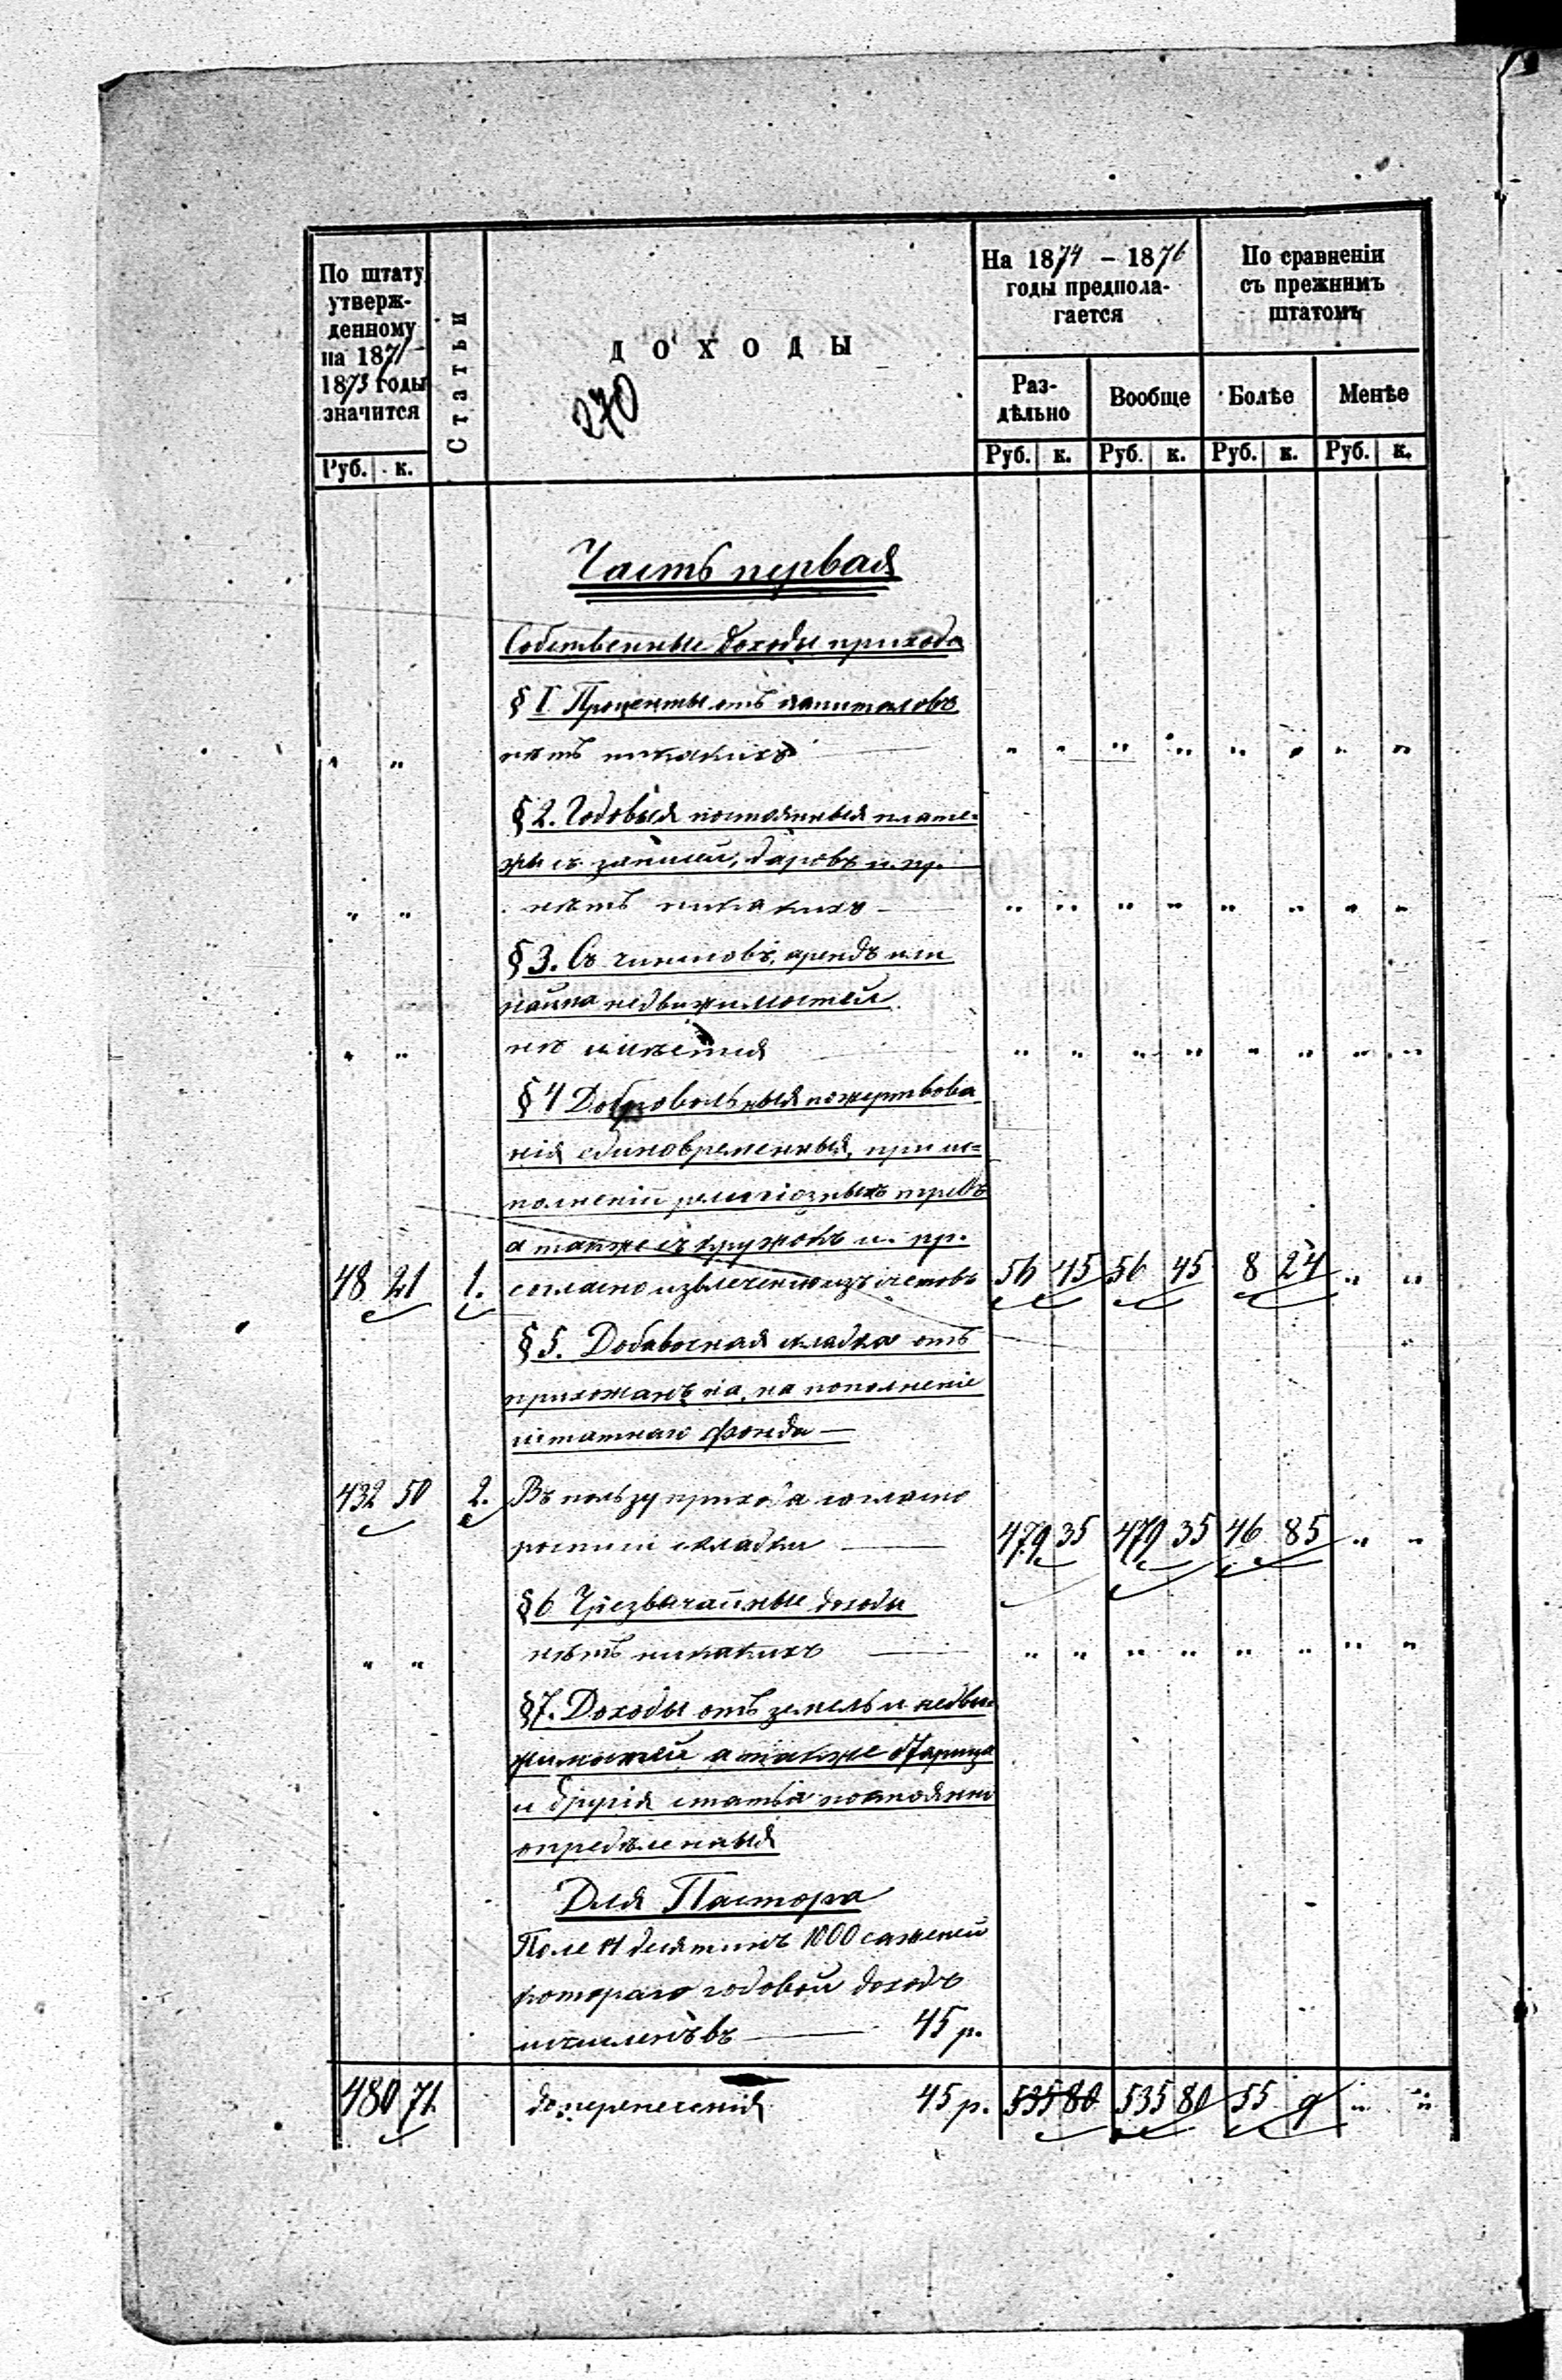 По штату утверж-
денному
на 1871
1873 годы
значится
Руб. к.
Статьи
ДОХОДЫ
270
На 1874 – 1876
годы предпола-
гается
Раз-
дѣльно
Вообще
Руб. к. Руб. к.
По сравненіи
съ прежнимъ
штатомъ
Болѣе Менѣе
Руб. к. Руб. к.
Часть первая
Собственные доходы прихода
§ I Проценты отъ капиталовъ
" " нѣтъ никакихъ — " " " " " " " "
§ 2. Годовыя постоянныя плате-
жи съ записей, даровъ и пр. —
" " нѣтъ никакихъ — " " " " " " " "
§ 3. Съ чиншовъ, арендъ или
найма недвижимостей
" " не имѣется " " " " " " " "
§ 4 Добровольныя пожертвова
нія единовременныя, при ис-
полненіи религіозныхъ требъ
а также съ кружокъ и. пр.
48 21 1. согласно извлеченію изъ счетовъ 56 45 56 45 8 24 " "
§ 5. Добавочная складка отъ
прихожанъ на, на пополненіе
штатнаго фонда —
432 50 2. Въ пользу прихода согласно
росписи складки — 479 35 479 35 46 85 " "
§ 6 Чрезвычайные доходы
" " нѣтъ никакихъ — " " " " " " " "
§ 7. Доходы отъ земель и недви-
жимостей а также
и другія статьи постоянно
опредѣленныя
Для Пастора
Поле десятинъ 1000 саженей
котораго годовой доходъ
исчисленъ въ — 45 р.
480 71. до перенесенія 45 р. 535 80 535 80 55 9 " "